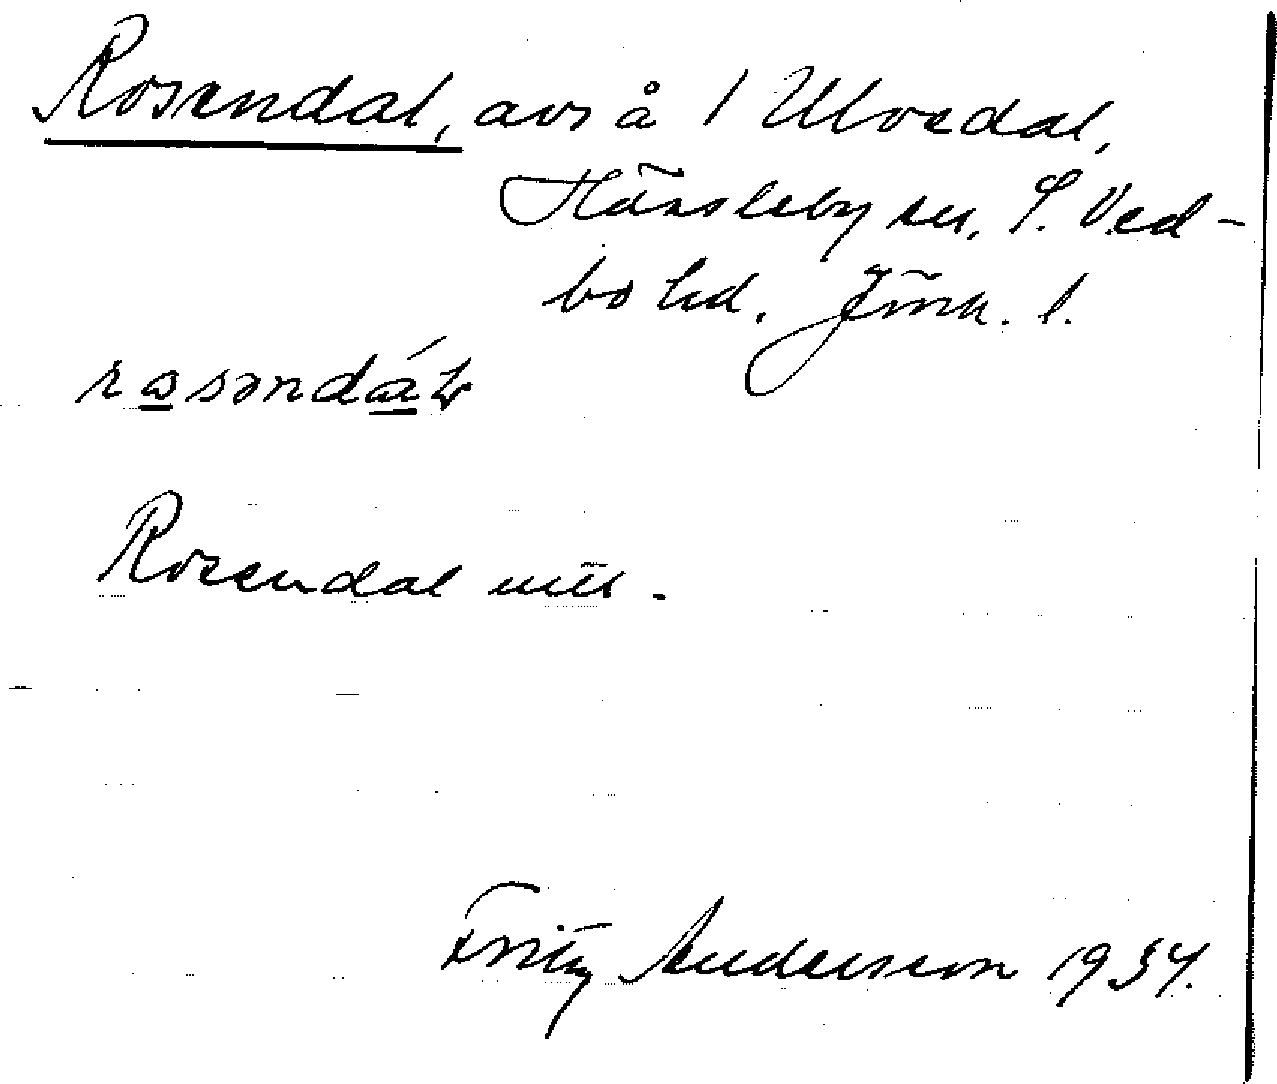 Rosendal, avs å 1 Ulvedal,
Hässleby sn, S. Ved-
bo hd. Jönk. l.
rosəndál
Rosendal utt.
Fritz Andersson 1934.